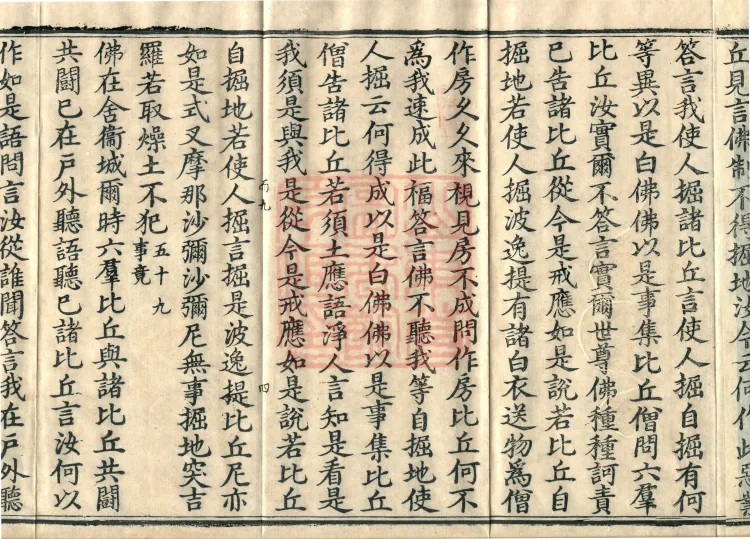 丘見言佛制不得掘地汝今云何作此惡業
答言我使人掘諸比丘言使人掘自掘有何
等異以是白佛佛以是事集比丘僧問六羣
比丘汝實爾不答言實爾世尊佛種種訶責
已告諸比丘從今是戒應如是說若比丘自
掘地若使人掘波逸提有諸白衣送物爲僧
作房久久來視見房不成問作房比丘何不
爲我速成此福答言佛不聽我等自掘地使
人掘云何得成以是白佛佛以是事集比丘
僧告諸比丘若須土應語淨人言知是看是
我須是與我是從今是戒應如是說若比丘
四
自掘地若使人掘言掘是波逸提比丘尼亦
如是式叉摩那沙彌沙彌尼無事掘地突吉
羅若取燥土不犯五十九事竟
佛在舍衞城爾時六羣比丘與諸比丘共鬪
共鬪已在戶外聽語聽已諸比丘言汝何以
作如是語問言汝從誰聞答言我在戶外聽